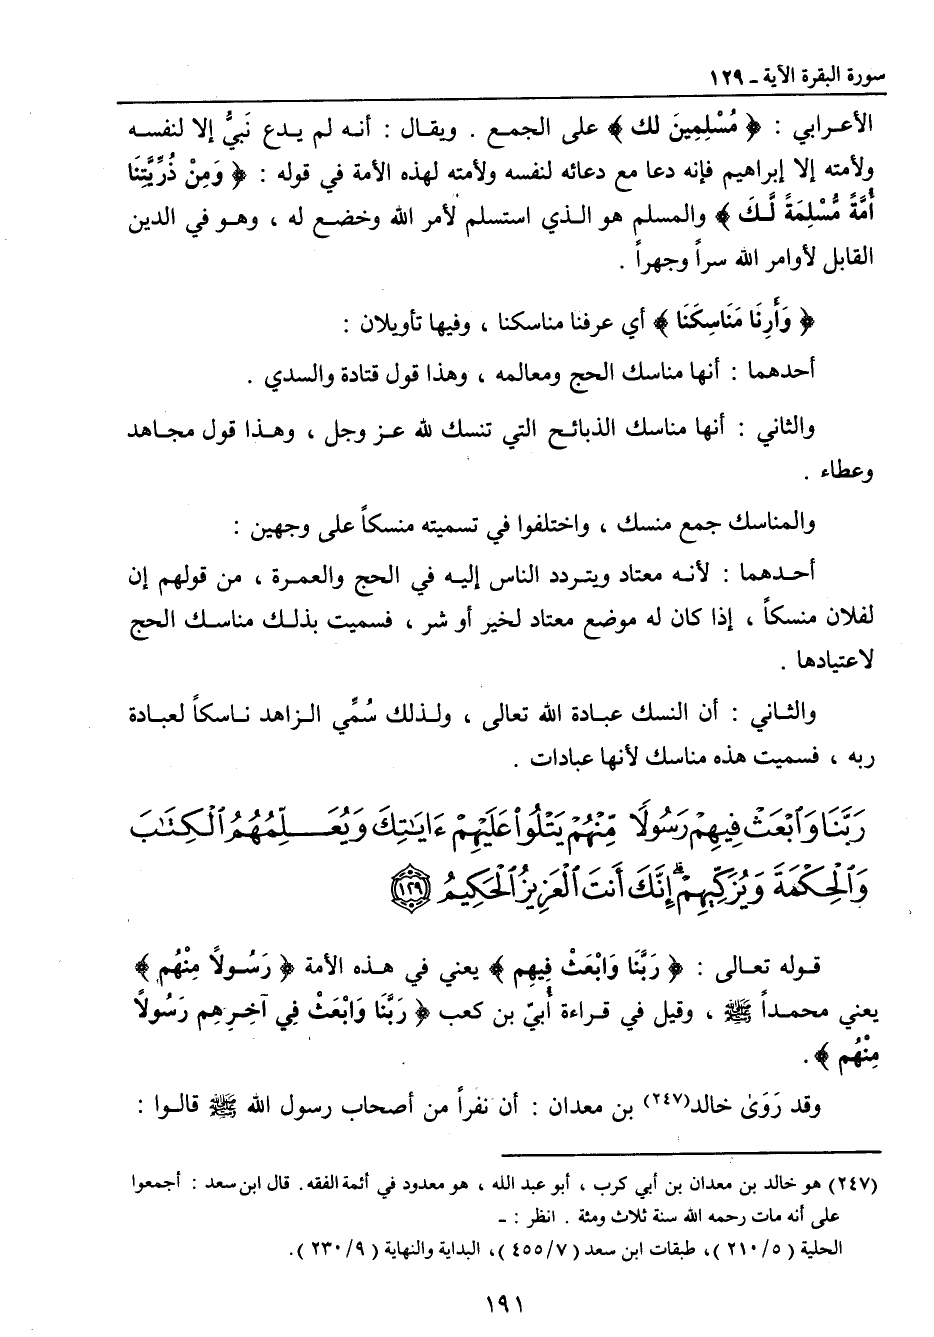 سورة البقرة الآية ـ ١٢٩
الأعرابي : ﴿ مُسْلِمِينَ لك ﴾ على الجمع . ويقال : أنه لم يدع نَبيُّ إلا لنفسه
ولأمته إلا إبراهيم فإنه دعا مع دعائه لنفسه ولأمته لهذه الأمة في قوله : ﴿ وَمِنْ ذُرِّيَّتِنَا
أُمَّةً مُّسْلِمَةً لَّكَ ﴾ والمسلم هو الذي استسلم لأمر الله وخضع له ، وهو في الدين
القابل لأوامر الله سراً وجهراً .
﴿ وَأَرِنَا مَنَاسِكَنَا ﴾ أي عرفنا مناسكنا ، وفيها تأويلان :
أحدهما : أنها مناسك الحج ومعالمه ، وهذا قول قتادة والسدي .
والثاني : أنها مناسك الذبائح التي تنسك لله عز وجل ، وهذا قول مجاهد
وعطاء .
والمناسك جمع منسك ، واختلفوا في تسميته منسكاً على وجهين :
أحدهما : لأنه معتاد ويتردد الناس إليه في الحج والعمرة ، من قولهم إن
لفلان منسكاً ، إذا كان له موضع معتاد لخير أو شر ، فسميت بذلك مناسك الحج
لاعتيادها .
والثاني : أن النسك عبادة الله تعالى ، ولذلك سُمِّي الزاهد ناسكاً لعبادة
ربه ، فسميت هذه مناسك لأنها عبادات .
رَبَّنَا وَٱبْعَثْ فِيهِمْ رَسُولًا مِّنْهُمْ يَتْلُوا۟ عَلَيْهِمْ ءَايَٰتِكَ وَيُعَلِّمُهُمُ ٱلْكِتَٰبَ
وَٱلْحِكْمَةَ وَيُزَكِّيهِمْ ۚ إِنَّكَ أَنتَ ٱلْعَزِيزُ ٱلْحَكِيمُ ١٢٩
قوله تعالى : ﴿ رَبَّنَا وَابْعَثْ فِيهِم ﴾ يعني في هذه الأمة ﴿ رَسُولاً مِنْهُم ﴾
يعني محمداً ﷺ ، وقيل في قراءة أُبيّ بن كعب ﴿ رَبَّنَا وَابْعَثْ فِي آخِرِهِم رَسُولاً
مِنْهُم ﴾ .
وقد رَوَىٰ خالد(٢٤٧) بن معدان : أن نفراً من أصحاب رسول الله ﷺ قالوا :
(٢٤٧) هو خالد بن معدان بن أبي كرب ، أبو عبد الله ، هو معدود في أئمة الفقه . قال ابن سعد : أجمعوا
على أنه مات رحمه الله سنة ثلاث ومئة . انظر : ـ
الحلية ( ٥/ ٢١٠ )، طبقات ابن سعد ( ٧/ ٤٥٥ )، البداية والنهاية ( ٩/ ٢٣٠ ).
١٩١